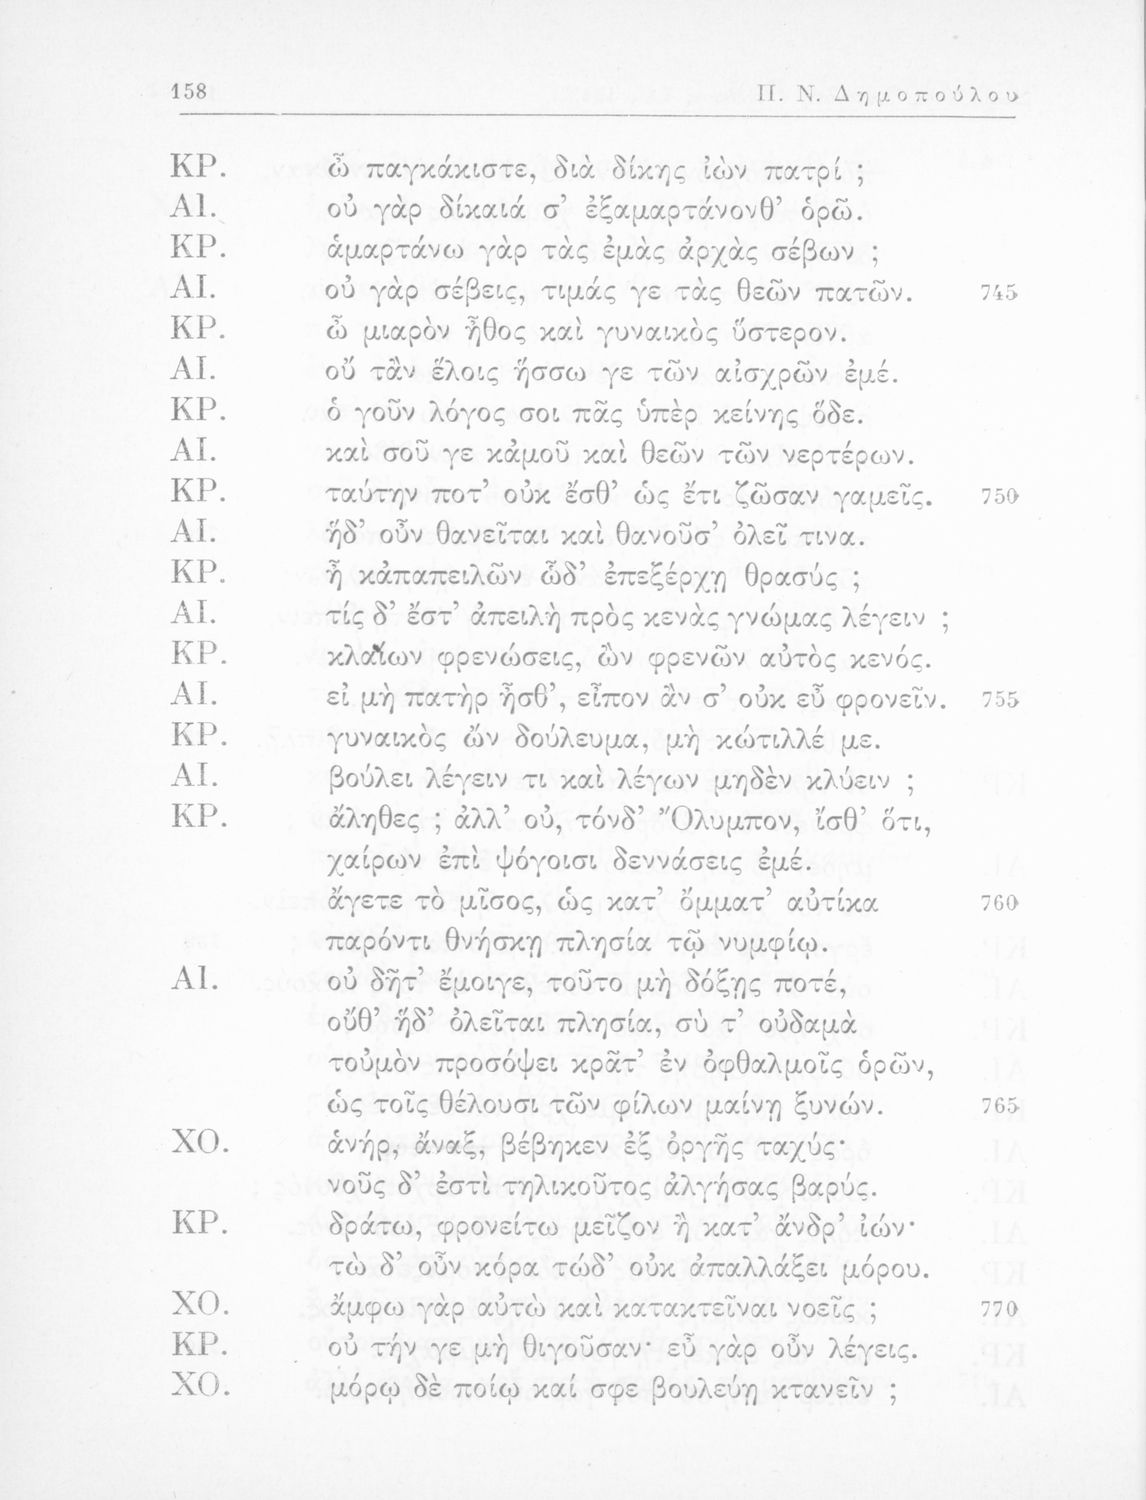 158 Π. Ν. Δημοπούλου
ΚΡ. ὦ παγκάκιστε, διὰ δίκης ἰὼν πατρί ;
ΑΙ. οὐ γὰρ δίκαιά σ’ ἐξαμαρτάνονθ’ ὁρῶ.
ΚΡ. ἁμαρτάνω γὰρ τὰς ἐμὰς ἀρχὰς σέβων ;
ΑΙ. οὐ γὰρ σέβεις, τιμάς γε τὰς θεῶν πατῶν. 745
ΚΡ. ὦ μιαρὸν ἦθος καὶ γυναικὸς ὕστερον.
ΑΙ. οὔ τἂν ἕλοις ἥσσω γε τῶν αἰσχρῶν ἐμέ.
ΚΡ. ὁ γοῦν λόγος σοι πᾶς ὑπὲρ κείνης ὅδε.
ΑΙ. καὶ σοῦ γε κἀμοῦ καὶ θεῶν τῶν νερτέρων.
ΚΡ. ταύτην ποτ’ οὐκ ἔσθ’ ὡς ἔτι ζῶσαν γαμεῖς. 750
ΑΙ. ἥδ’ οὖν θανεῖται καὶ θανοῦσ’ ὀλεῖ τινα.
ΚΡ. ἦ κἀπαπειλῶν ὧδ’ ἐπεξέρχῃ θρασύς ;
ΑΙ. τίς δ’ ἔστ’ ἀπειλὴ πρὸς κενὰς γνώμας λέγειν ;
ΚΡ. κλαίων φρενώσεις, ὢν φρενῶν αὐτὸς κενός.
ΑΙ. εἰ μὴ πατὴρ ἦσθ’, εἶπον ἂν σ’ οὐκ εὖ φρονεῖν. 755
ΚΡ. γυναικὸς ὢν δούλευμα, μὴ κώτιλλέ με.
ΑΙ. βούλει λέγειν τι καὶ λέγων μηδὲν κλύειν ;
ΚΡ. ἄληθες ; ἀλλ’ οὐ, τόνδ’ Ὄλυμπον, ἴσθ’ ὅτι,
χαίρων ἐπὶ ψόγοισι δεννάσεις ἐμέ.
ἄγετε τὸ μῖσος, ὡς κατ’ ὄμματ’ αὐτίκα 760
παρόντι θνήσκῃ πλησία τῷ νυμφίῳ.
ΑΙ. οὐ δῆτ’ ἔμοιγε, τοῦτο μὴ δόξῃς ποτέ,
οὔθ’ ἥδ’ ὀλεῖται πλησία, σὺ τ’ οὐδαμὰ
τοὐμὸν προσόψει κρᾶτ’ ἐν ὀφθαλμοῖς ὁρῶν,
ὡς τοῖς θέλουσι τῶν φίλων μαίνῃ ξυνών. 765
ΧΟ. ἁνήρ, ἄναξ, βέβηκεν ἐξ ὀργῆς ταχύς·
νοῦς δ’ ἐστὶ τηλικοῦτος ἀλγήσας βαρύς.
ΚΡ. δράτω, φρονείτω μεῖζον ἢ κατ’ ἄνδρ’ ἰών·
τὼ δ’ οὖν κόρα τώδ’ οὐκ ἀπαλλάξει μόρου.
ΧΟ. ἄμφω γὰρ αὐτὼ καὶ κατακτεῖναι νοεῖς ; 770
ΚΡ. οὐ τήν γε μὴ θιγοῦσαν· εὖ γὰρ οὖν λέγεις.
ΧΟ. μόρῳ δὲ ποίῳ καί σφε βουλεύῃ κτανεῖν ;